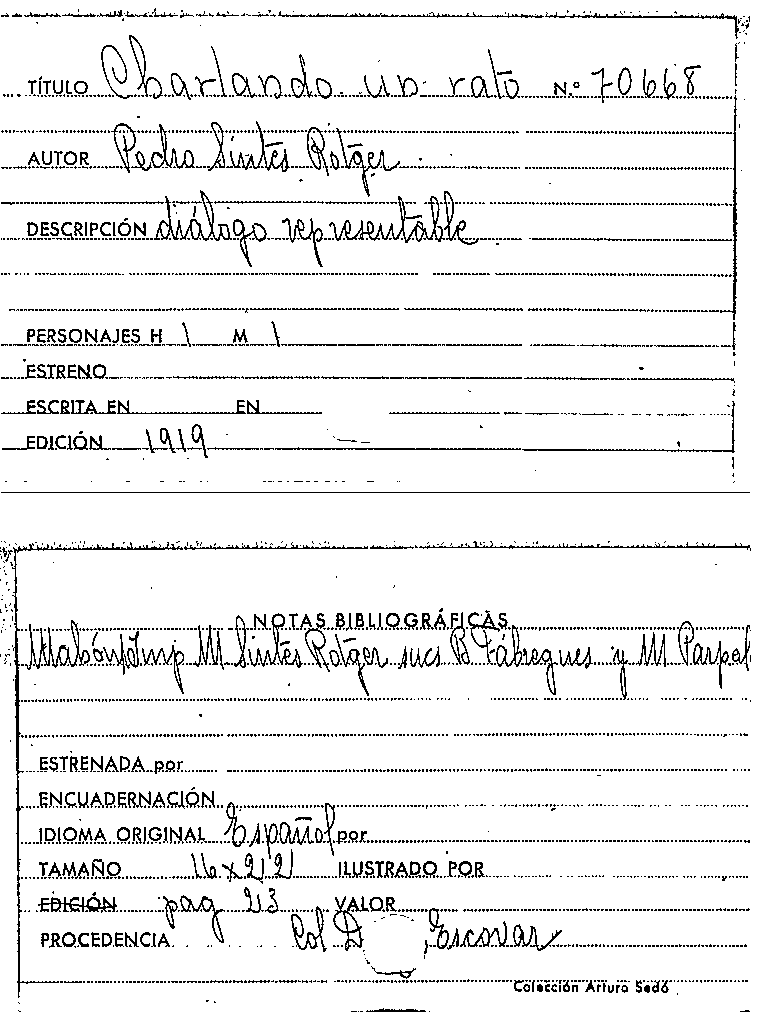 TÍTULO Charlando un rato N.º 70668
AUTOR Pedro Sintes Rotger
DESCRIPCIÓN diálogo representable
PERSONAJES H 1 M 1
ESTRENO
ESCRITA EN EN
EDICIÓN 1919
NOTAS BIBLIOGRÁFICAS
Mahón Imp M Sintes Rotger sucs B Fábregues y M Parpal
ESTRENADA por
ENCUADERNACIÓN
IDIOMA ORIGINAL Español por
TAMAÑO 16 x 22 ILUSTRADO POR
EDICIÓN pag 23 VALOR
PROCEDENCIA Col D Escovar
Colección Arturo Sedó